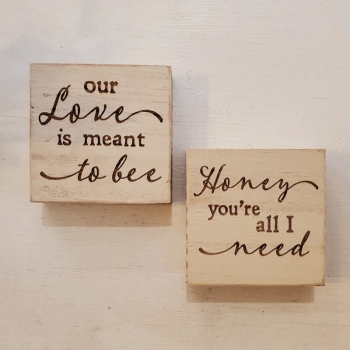 our
Love
is meant
to bee
Honey
you're
all I
need